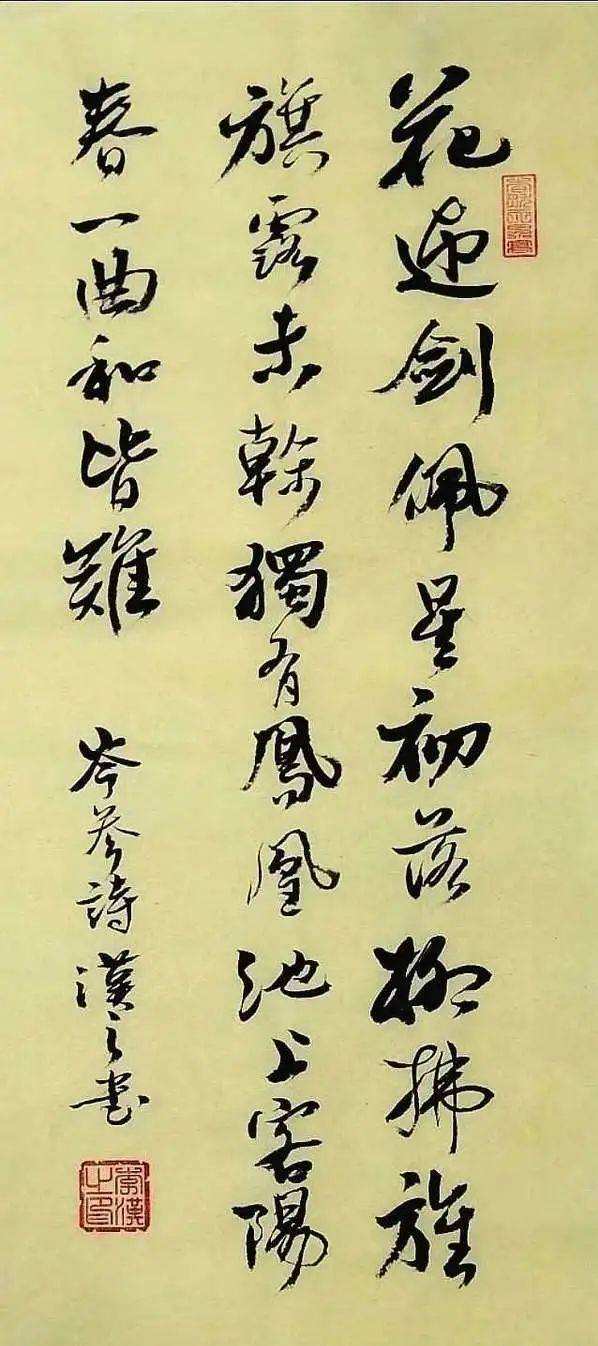 花迎劍佩星初落柳拂旌
旗露未乾獨有鳳凰池上客陽
春一曲和皆難
岑參詩漢之書